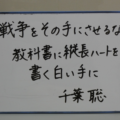 戦争をその手にさせるな
教科書に縦長ハートを
書く白い手に
千葉聡